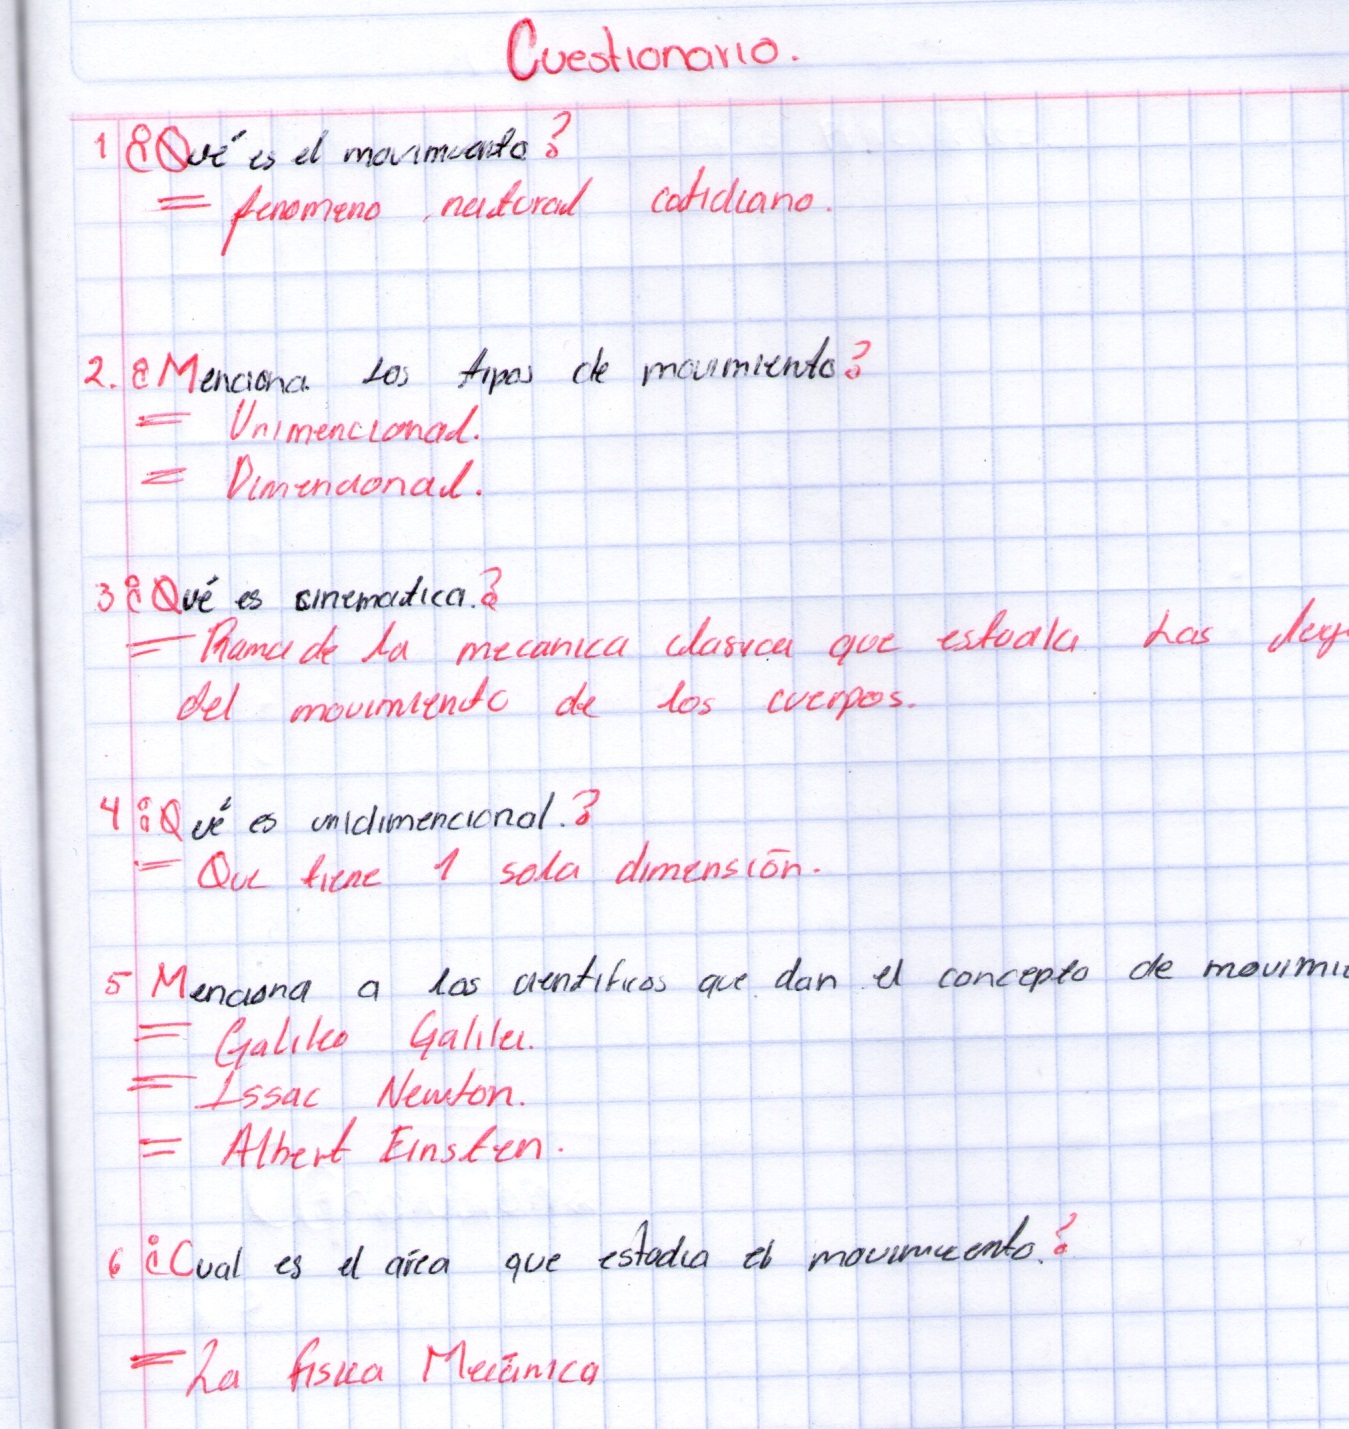 Cuestionario.
1 ¿Qué es el movimiento?
= fenomeno natural cotidiano.
2. ¿Menciona los tipos de movimiento?
= Unimencional.
= Dimencional.
3 ¿Qué es sinematica.?
= Rama de la mecanica clasica que estudia las
del movimiento de los cuerpos.
4 ¿Qué es unidimencional.?
= Que tiene 1 sola dimensión.
5 Menciona a los cientificos que dan el concepto de
= Galileo Galilei.
= Issac Newton.
= Albert Einsten.
6 ¿Cual es el área que estudia el movimiento.?
= La fisica Mecánica